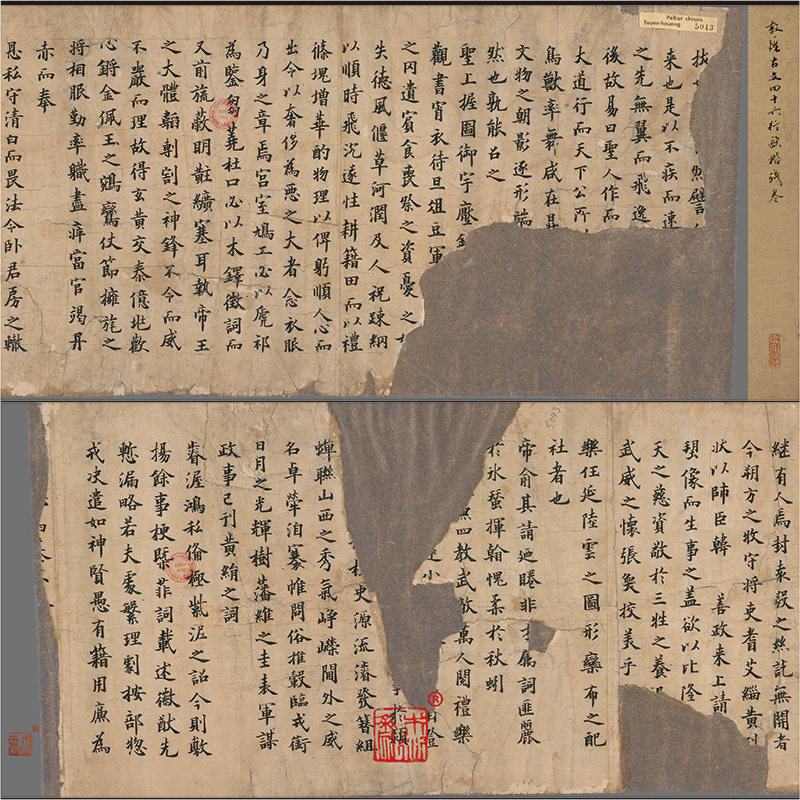 敦煌古文四十六行無款殘卷
Pelliot chinois
Touen-houang 5043
然譬
来也是以不疾而速
之先無翼而飛逸
後故易曰聖人作而
大道行而天下公所
鳥獸率舞咸在
文物之朝影逐形端
然也孰能召之
聖上握圖御宇壓
觀書宵衣待旦俎豆軍
之内遺賓食喪祭之資憂之
失德風偃草河潤及人祝踈網
以順時飛沉遂性耕籍田而以禮
絛槐增華酌物理以俾躬順人心而
出令以奢侈為惡之大者念衣服
乃身之章焉宮室鳩工必以虎祁
為鑒芻蕘杜口必以木鐸徵詞而
又前旒蔽明黈纊塞耳執帝王
之大體韜剸割之神鋒不令而威
不嚴而理故得玄黃交泰億兆歡
心鏘金佩玉之鵷鸞仗節擁旄之
將相服勤率職盡瘁當官竭丹
赤而奉
息私守清白而畏法令卧君房之轍
継有人焉封袁毅之絲託無開者
今朔方之牧守將吏耆艾緇黃
狀以帥臣韓 善政来上請
像而生事之盖欲以比隆
天之慈資敬於三牲之養
武威之懷張奐校美乎
欒任延陸雲之圖形欒布之配
社者也
帝俞其請廼睠非才屬詞匪麗
於氷蠶揮翰愧柔於秋蚓
四教武敵萬人閱禮樂
小
史源流濬發簪組
蟬聯山西之秀氣崢嶸閫外之威
名卓犖洎褰帷問俗推轂臨戎銜
日月之光輝樹藩維之圭表軍謀
政事已刊黃絹之詞
眷渥鴻私俻極紫泥之詔今則敷
揚餘事梗槩菲詞載述徽猷先
慙漏略若夫處繁理劇按部惣
戎决遣如神賢愚有籍用廉為